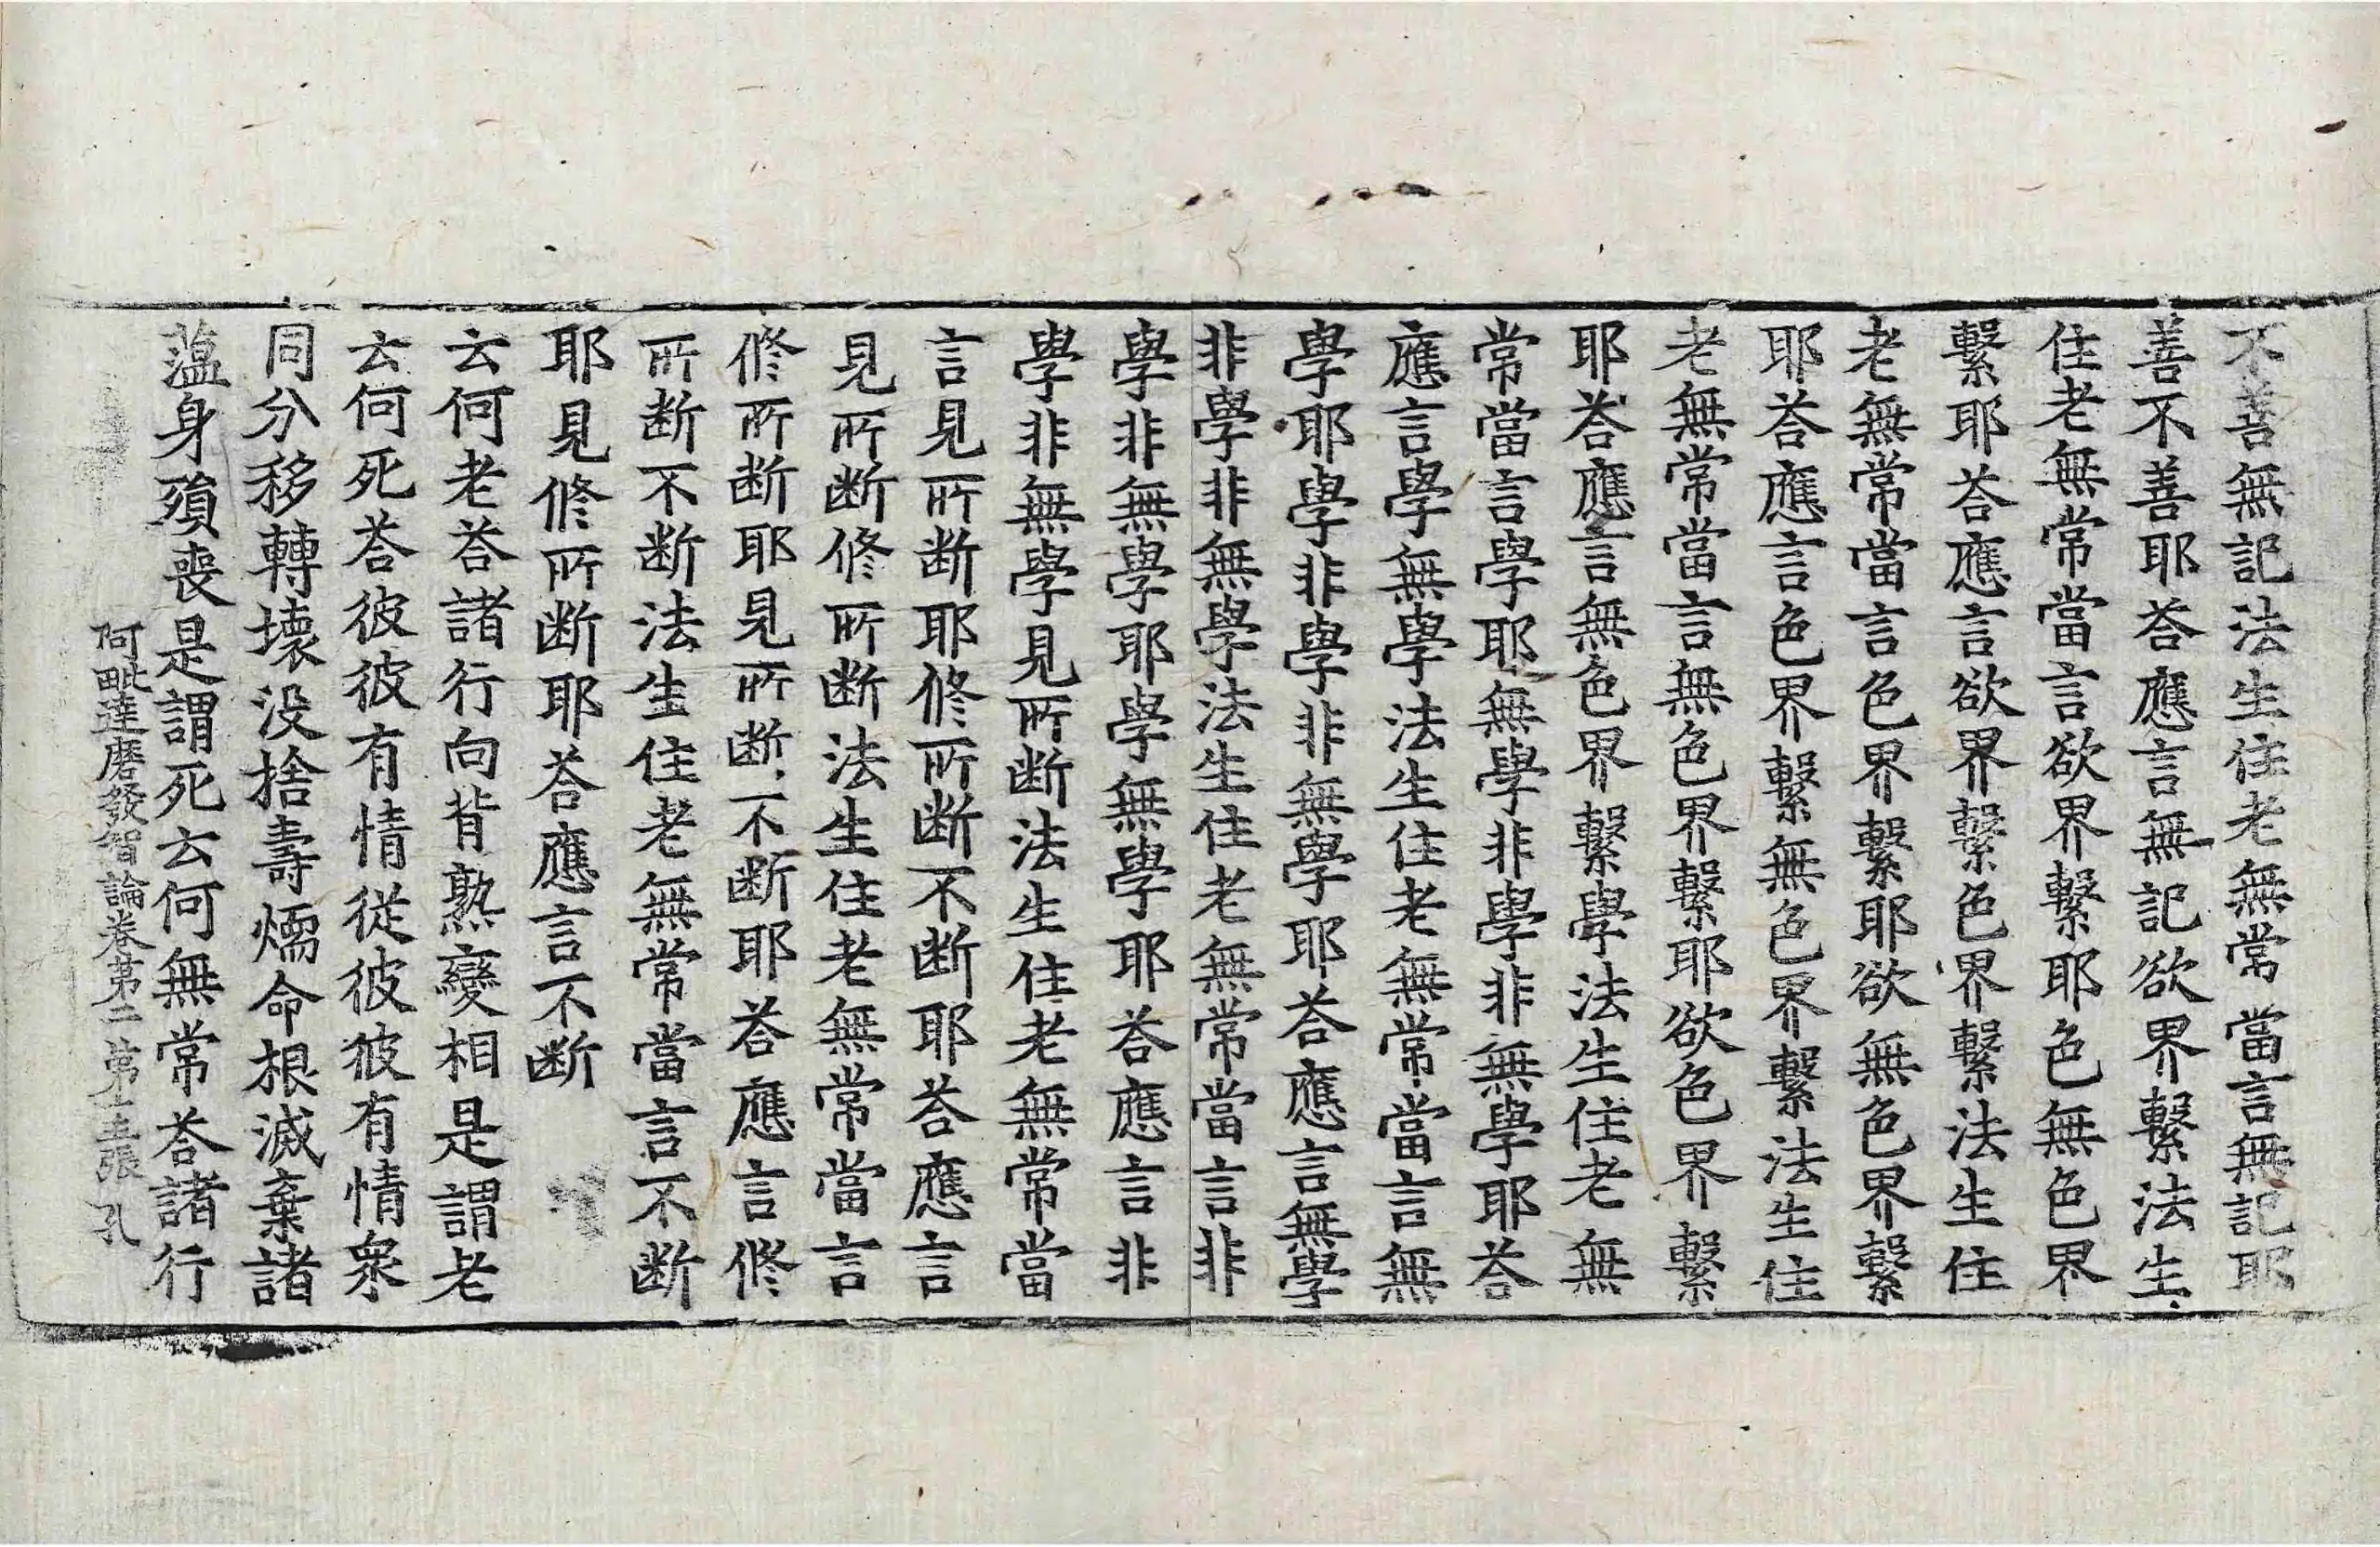 不善無記法生住老無常當言無記耶
善不善耶荅應言無記欲界繫法生
住老無常當言欲界繫耶色無色界
繫耶荅應言欲界繫色界繫法生住
老無常當言色界繫耶欲無色界繫
耶荅應言色界繫無色界繫法生住
老無常當言無色界繫耶欲色界繫
耶荅應言無色界繫學法生住老無
常當言學耶無學非學非無學耶荅
應言學無學法生住老無常當言無
學耶學非學非無學耶荅應言無學
非學非無學法生住老無常當言非
學非無學耶學無學耶荅應言非
學非無學見所断法生住老無常當
言見所断耶修所断不断耶荅應言
見所断修所断法生住老無常當言
修所断耶見所断不断耶荅應言修
所断不断法生住老無常當言不断
耶見修所断耶荅應言不断
云何老荅諸行向背熟變相是謂老
云何死荅彼彼有情從彼彼有情衆
同分移轉壞没捨壽煖命根滅棄諸
蕰身殞喪是謂死云何無常荅諸行
阿毗達磨發智論卷第二 第十五張 孔